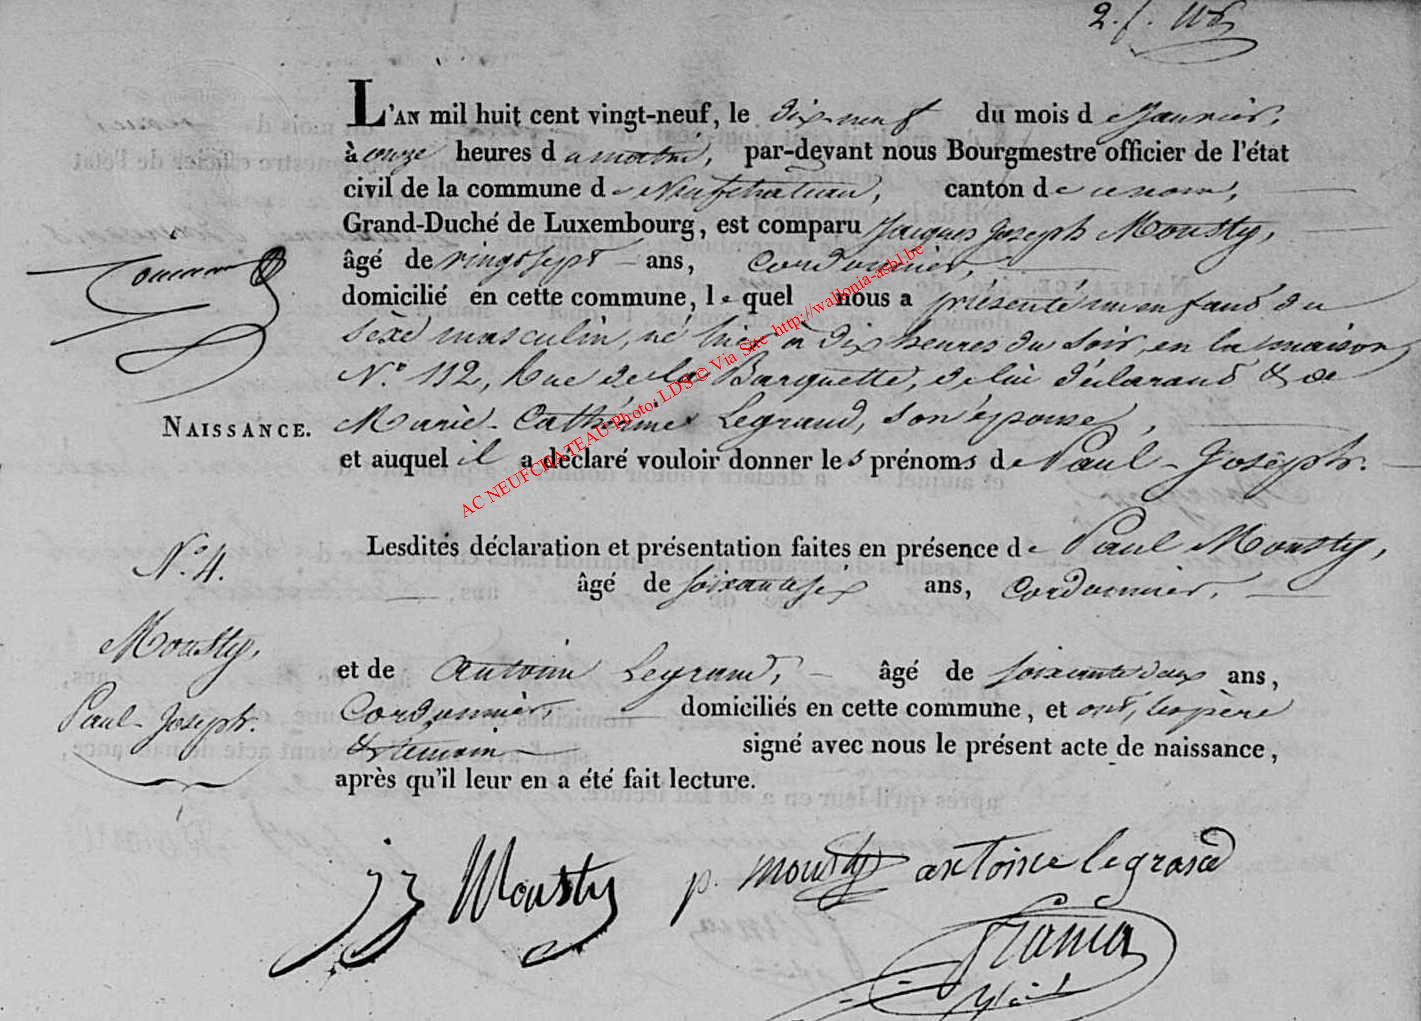 2. f.
L'AN mil huit cent vingt-neuf, le dix-neuf du mois de Janvier,
à onze heures du matin, par-devant nous Bourgmestre officier de l'état
civil de la commune de Neufchateau, canton de ce nom,
Grand-Duché de Luxembourg, est comparu Jacques Joseph Mousty,
âgé de vingt sept ans, Cordonnier,
domicilié en cette commune, lequel nous a présenté un enfant du
Sexe masculin, né hier à dix heures du Soir, en la maison
N.º 112, Rue de la Barquette, de lui déclarant & de
NAISSANCE. Marie-Catherine Legrand, son épouse,
et auquel il a déclaré vouloir donner les prénoms de Paul-Joseph.
AC NEUFCHATEAU Photo: LDS © Via Site http://wallonia-asbl.be
N.º 4. Lesdites déclaration et présentation faites en présence de Paul Mousty,
âgé de soixante six ans, Cordonnier,
Mousty,
et de Antoine Legrand, âgé de soixante deux ans,
Paul-Joseph. Cordonnier domiciliés en cette commune, et ont, les père
& témoin signé avec nous le présent acte de naissance,
après qu'il leur en a été fait lecture.
jj Mousty p. mousty antoine legrand